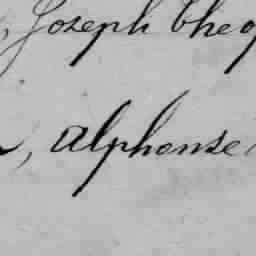 , Joseph Theo
, Alphonse